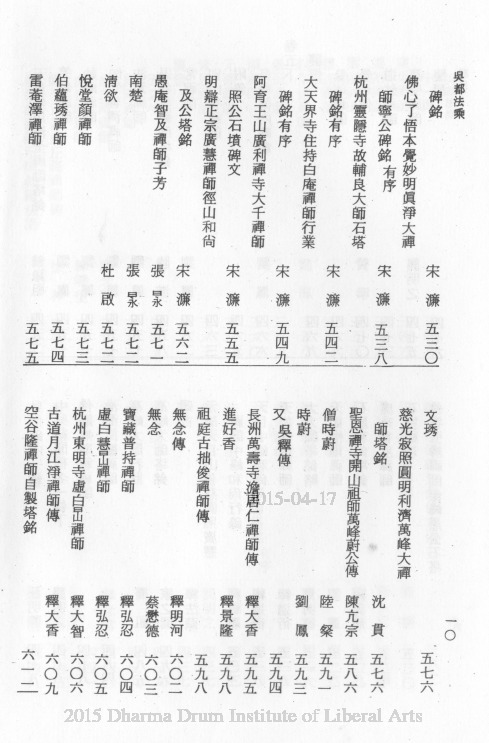 吳都法乘
一〇
碑銘 宋濂 五三〇
佛心了悟本覺妙明眞淨大禪
師寧公碑銘有序 宋濂 五三八
杭州靈隱寺故輔良大師石塔
碑銘有序 宋濂 五四二
大天界寺住持白庵禪師行業
碑銘有序 宋濂 五四九
阿育王山廣利禪寺大千禪師
照公石墳碑文 宋濂 五五五
明辯正宗廣慧禪師徑山和尙
及公塔銘 宋濂 五六二
愚庵智及禪師子芳 張昹 五七一
南楚 張昹 五七二
淸欲 杜啟 五七二
悅堂顏禪師 五七三
伯蘊琇禪師 五七四
雷菴澤禪師 五七五
文琇 五七六
慈光寂照圓明利濟萬峰大禪
師塔銘 沈貫 五七六
聖恩禪寺開山祖師萬峰蔚公傳 陳亢宗 五八六
僧時蔚 陸粲 五九一
時蔚 劉鳳 五九三
又吳釋傳 五九四
長洲萬壽寺澹居仁禪師傳 釋大香 五九五
進好香 釋景隆 五九八
祖庭古拙俊禪師傳 五九八
無念傳 釋明河 六〇二
無念 蔡懋德 六〇三
寶藏普持禪師 釋弘忍 六〇四
虛白慧旵禪師 釋弘忍 六〇五
杭州東明寺虛白旵禪師 釋大智 六〇六
古道月江淨禪師傳 釋大香 六〇九
空谷隆禪師自製塔銘 六一二
2015-04-17
2015 Dharma Drum Institute of Liberal Arts